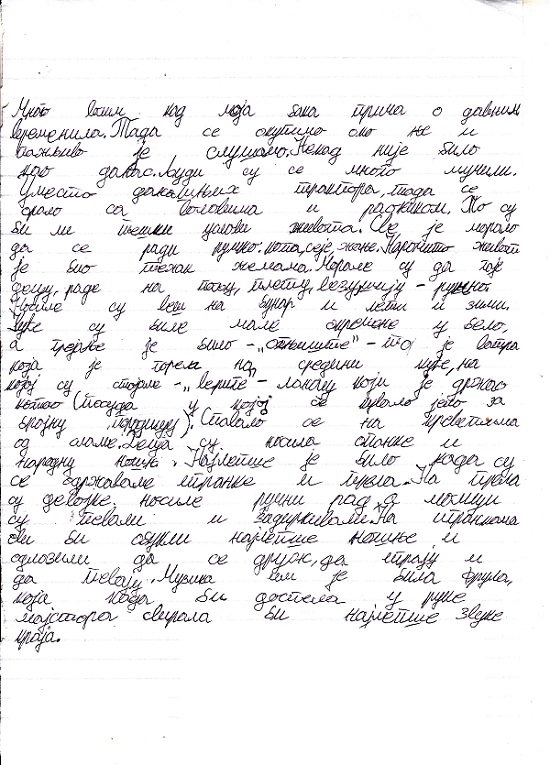 Много волим кад моја бака прича о давним
временима. Тада се окупимо око ње и
пажљиво је слушамо. Некад није било
као данас. Људи су се много мучили.
Уместо данашњих трактора, тада се
орало са воловима и радником. То су
би ли тешки услови живота. Све је морало
да се ради ручно: копа, сеје, жање. Нарочито живот
је био тежак женама. Морале су да чувају
децу, раде на пољу, плету, везу, - ручно.
Носиле су веш на бунар и лети и зими.
Куће су биле мале окречене у бело,
а грејање је било -„огњиште" - то је ватра
која је горела на средини куће, на
којој су стојале -„вериге"- ланац који је држао
котао (посуда у којој се кувало јело за
бројну породицу). Спавало се на креветима
од сламе. Деца су носила опанке и
народну ношњу. Најлепше је било када су
се одржавале игранке и прела. На прела
су девојке носиле ручни рад, а момци
су певали и задиркивали. На игранкама
сви би обукли најлепше ношње и
одлазили да се друже, да играју и
да певају. Музика им је била фрула,
која када би доспела у руке
мајстора свирала би најлепше звуке
краја.